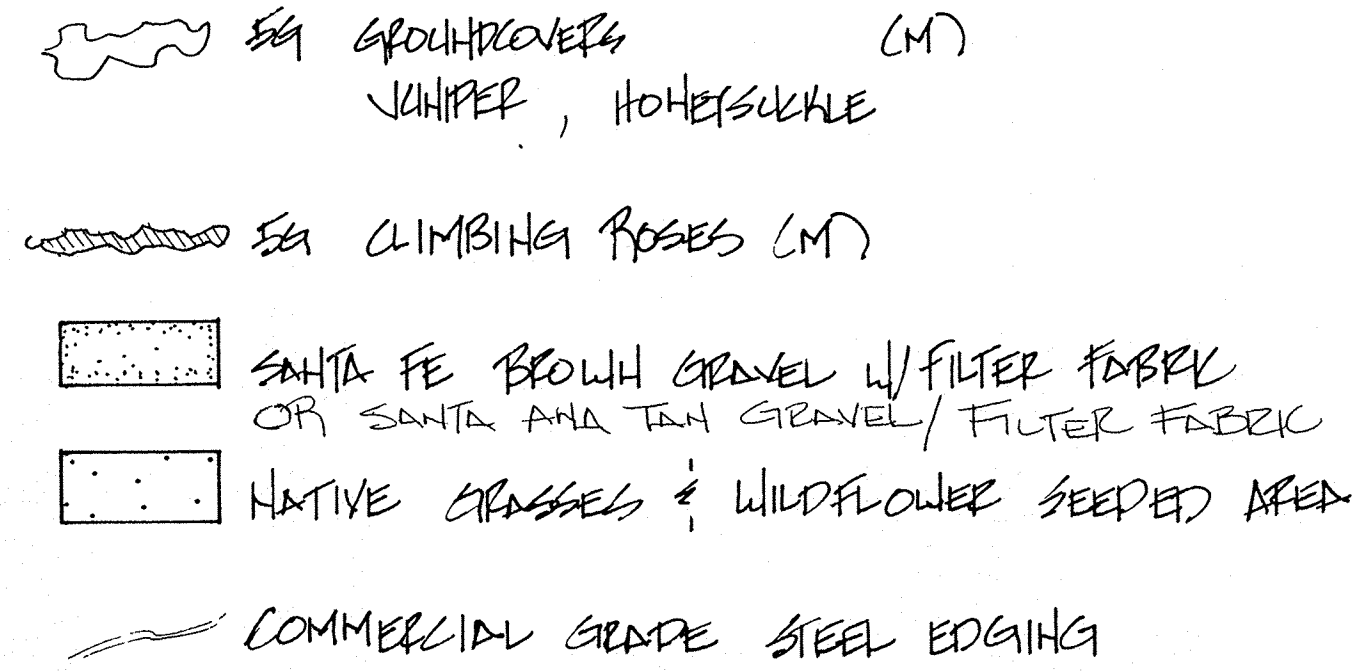 5G GROUNDCOVERS (M)
JUNIPER, HONEYSUCKLE
5G CLIMBING ROSES (M)
SANTA FE BROWN GRAVEL W/ FILTER FABRIC
OR SANTA ANA TAN GRAVEL/ FILTER FABRIC
NATIVE GRASSES & WILDFLOWER SEEDED AREA
COMMERCIAL GRADE STEEL EDGING